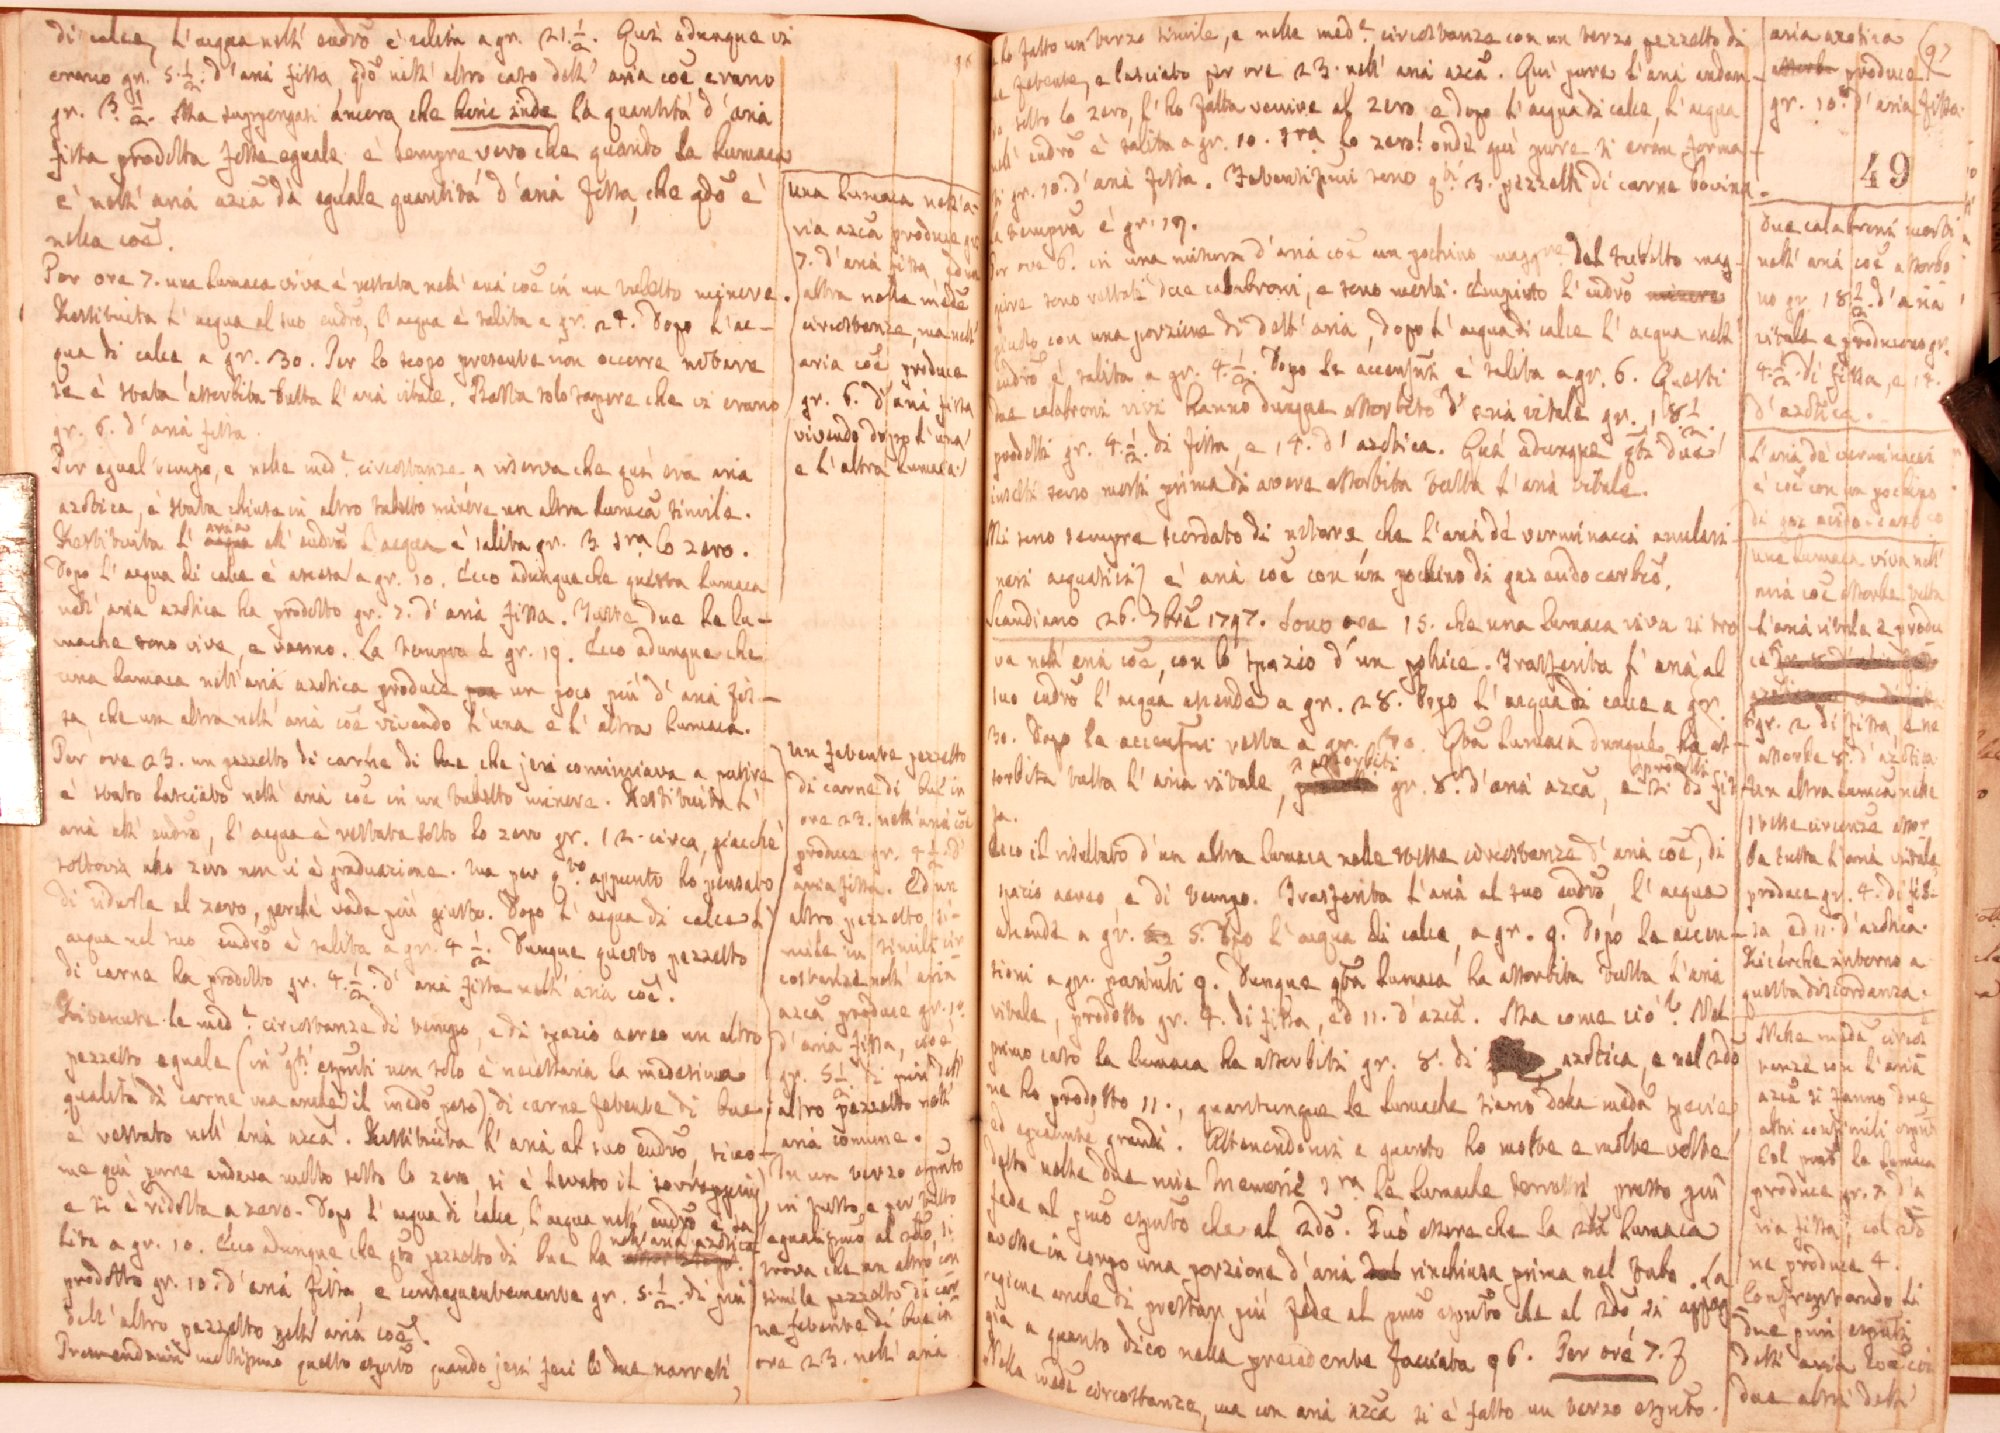 di calce, l'acqua nell' eudrõ è salita a gr. 21.½. Quì adunque vi
erano gr. 5.½. d'aria fissa, qdõ nell' altro caso dell' aria coẽ erano
gr. 3.½. Ma suppongasi ancora che hinc inde la quantità d'aria
fissa prodotta fosse eguale, è sempre vero che quando la lumaca
è nell' aria azcã dà eguale quantità d'aria fissa, che qdõ è
nella coẽ.
Per ore 7. una lumaca viva è restata nell' aria coẽ in un tubetto minore.
Restituita l'acqua al suo eudrõ, l'acqua è salita a gr. 24. Dopo l'ac-
qua di calce, a gr. 30. Per lo scopo presente non occorre notare
se è stata assorbita tutta l'aria vitale. Basta solo sapere che vi erano
gr. 6. d'aria fissa.
Per egual tempo, e nelle med.e circostanze a riserva che quì era aria
azotica, è stata chiusa in altro tubetto minore un altra lumaca simile.
Restituita l' aria all' eudrõ l'acqua è salita gr. 3 sra lo zero.
Dopo l'acqua di calce è ascesa a gr. 10. Ecco adunque che questa lumaca
nell' aria azotica ha prodotto gr. 7. d'aria fissa. Tutte due le lu-
mache sono vive, e vanno. La tempra è gr. 19. Ecco adunque che
una lumaca nell' aria azotica produce un poco più d'aria fis-
sa, che un altra nell' aria coẽ vivendo l'una e l'altra lumaca.
Per ore 23. un pezzetto di carne di bue che jeri cominciava a putire
è stato lasciato nell' aria coẽ in un tubetto minore. Restituita l'
aria all' eudrõ, l'acqua è restata sotto lo zero gr. 12. circa, giacchè
sottovia allo zero non vi è graduazione. Ma per qto appunto ho pensato
di ridurla al zero, perchè vada più giusto. Dopo l'acqua di calce l'
acqua nel suo eudrõ è salita a gr. 4½. Dunque questo pezzetto
di carne ha prodotto gr. 4.½. d'aria fissa nell' aria coẽ.
Ritenute le med.e circostanze di tempo, e di spazio aereo un altro
pezzetto eguale (in qti espmti non solo è necessaria la medesima
qualità di carne ma anche il medõ peso) di carne fetente di bue
è restato nell' aria azcã. Restituita l'aria al suo eudrõ, sicco-
me quì pure andava molto sotto lo zero si è levato il sovrappiù,
e si è ridotta a zero. Dopo l'acqua di calce, l'acqua nell' eudrõ è sa-
lita a gr. 10. Ecco adunque che qto pezzetto di bue ha nell' aria azotica
prodotto gr. 10. d'aria fissa, e conseguentemente gr. 5.½. di più
dell' altro pezzetto nell' aria coẽ.
Premendomi moltissimo questo espmto quando jeri feci li due narrati,
una lumaca nell'a-
ria azcã produce gr.
7. d'aria fissa, ed una
altra nelle medẽ
circostanze, ma nell'
aria coẽ produce
gr. 6. d'aria fissa
vivendo dopo l'una
e l'altra lumaca.
Un fetente pezzetto
di carne di bue in
ore 23. nell'aria coẽ
produce gr. 4½. d'
aria fissa. Ed un
altro pezzetto si-
mile in simili cir
costanze nell' aria
azcã produce gr. 10.
d'aria fissa, cioè
gr. 5½. di più dell'
altro pezzetto nell'
aria comune.
In un terzo espmto
in tutto e per tutto
egualissimo al 2dõ, si
trova che un altro con
simile pezzetto di car
ne fetente di bue in
ore 23. nell' aria
ho fatto un terzo simile, e nelle med.e circostanze con un terzo pezzetto di
fetente, e lasciato per ore 23. nell' aria azcã. Quì pure l'aria andan-
do sotto lo zero, l'ho fatta venire al zero e dopo l'acqua di calce, l'acqua
nell' eudrõ è salita a gr. 10. sra lo zero: onde quì pure si eran forma-
ti gr. 10. d'aria fissa. Fetentissimi sono qti 3. pezzetti di carne bovina.
la tempra è gr. 19.
Per ore 6. in una misura d'aria coẽ un pochino maggre del tubetto mag-
giore sono restati due calabroni, e sono morti. Empiuto l'eudrõ
giusto con una porzione di dett' aria, dopo l'acqua di calce l'acqua nell'
eudrõ è salita a gr. 4.½. Dopo le accensni è salita a gr. 6. Questi
due calabroni vivi hanno dunque assorbito d'aria vitale gr. 18½.
prodotti gr. 4.½. di fissa, e 14. d'azotica. Quà adunque qti due
insetti sono morti prima di avere assorbita tutta l'aria vitale.
Mi sono sempre scordato di notare che l'aria de' verminacci anulosi
neri acquatici è aria coẽ con un pochino di gaz acido carbcõ.
Scandiano 26. 7brẽ 1797. Sono ore 15. che una lumaca viva si tro
va nell' aria coẽ, con lo spazio d'un pollice. Trasferita l'aria al
suo eudrõ l'acqua ascende a gr. 28. Dopo l'acqua di calce a gr.
30. Dopo le accensni resta a gr. 30. Qta lumaca dunque ha as-
sorbita tutta l'aria vitale, assorbiti gr. 8. d'aria azcã, e prodotti 2. di fis
sa.
Ecco il risultato d'un altra lumaca nelle stesse circostanze d'aria coẽ, di
spazio aereo e di tempo. Trasferita l'aria al suo eudrõ, l'acqua
ascende a gr. 5. Dpo l'acqua di calce, a gr. 9. Dopo le accen-
sioni a gr. parimenti 9. Dunque qta lumaca ha assorbita tutta l'aria
vitale, prodotto gr. 4. di fissa, ed 11. d'azcã. Ma come ciò? Nel
primo caso la lumaca ha assorbiti gr. 8. di azotica, e nel 2dõ
ne ha prodotto 11., quantunque le lumache siano della medã specie
ed egualmte grandi. Attenendomi a quanto ho molte e molte volte
detto nelle due mie Memorie sra le lumache terrestri presto più
fede al pmõ espmto che al 2dõ. Può essere che la 2dã lumaca
avesse in corpo una porzione d'aria rinchiusa prima nel tubo. La
ragione anche di prestar più fede al pmõ espmto che al 2dõ si appog-
gia a quanto dico nella precedente facciata 96. Per ore 7.
Nelle medẽ circostanze, ma con aria azcã si è fatto un terzo espmto.
97
aria azotica
produce
gr. 10. d'aria fissa.
49
due calabroni morti
nell' aria coẽ assorbo
no gr. 18½. d'aria
vitale e producono gr.
4.½. di fissa, e 14.
d'azotica.
L'aria de' verminacci
è coẽ con un pochino
di gaz acido-carbco
una lumaca viva nell'
aria coẽ assorbe tutta
l'aria vitale e produ
ce
gr. 2 di fissa, e ne
assorbe 8. d'azotica.
Un altra lumaca nelle
stesse circonze assor
be tutta l'aria vitale
produce gr. 4. di fis-
sa ed 11. d'azotica.
Ricerche intorno a
questa discordanza.
Nelle medẽ circos
tanze con l'aria
azcã si fanno due
altri consimili espmti
Col pmõ la lumaca
produce gr. 7. d'a
ria fissa, col 2dõ
ne produce 4.
Confrontando li
due primi espmti
dell' aria coẽ coi
due altri dell'